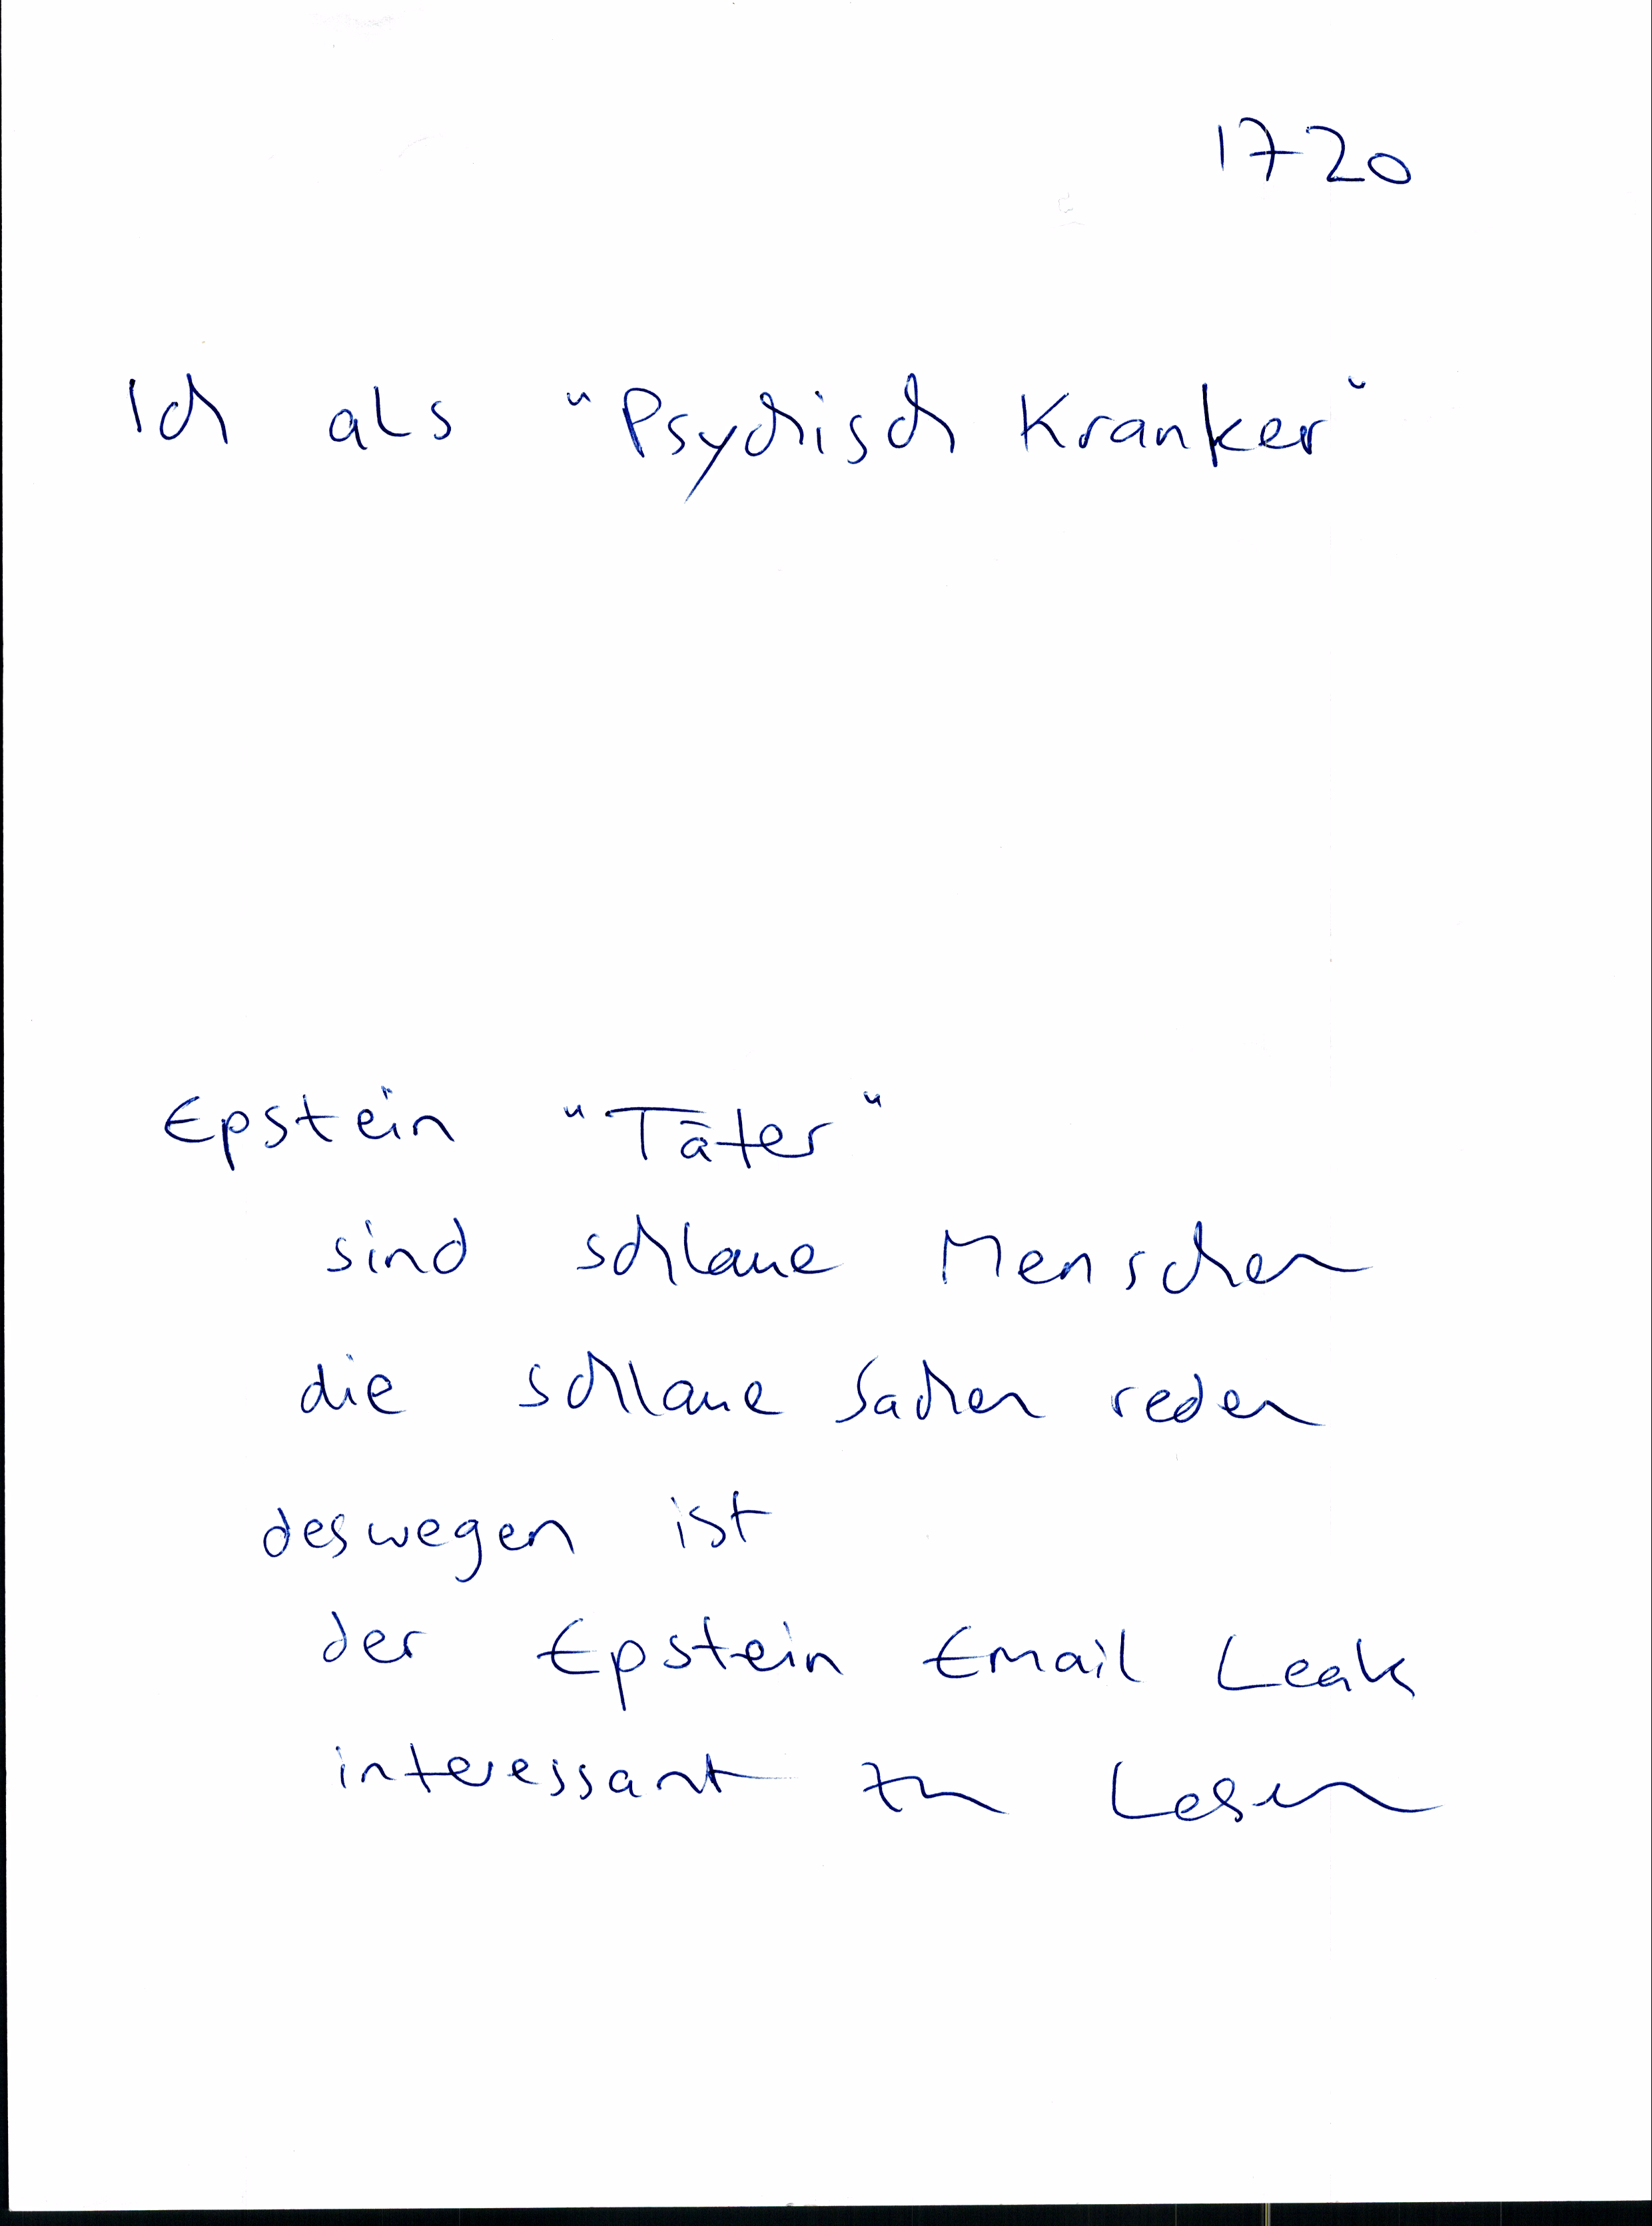 1720
Ich als "Psychisch Kranker"
Epstein "Täter"
sind schlaue Menschen
die schlaue Sachen reden
deswegen ist
der Epstein Email Leak
interessant zu Lesen